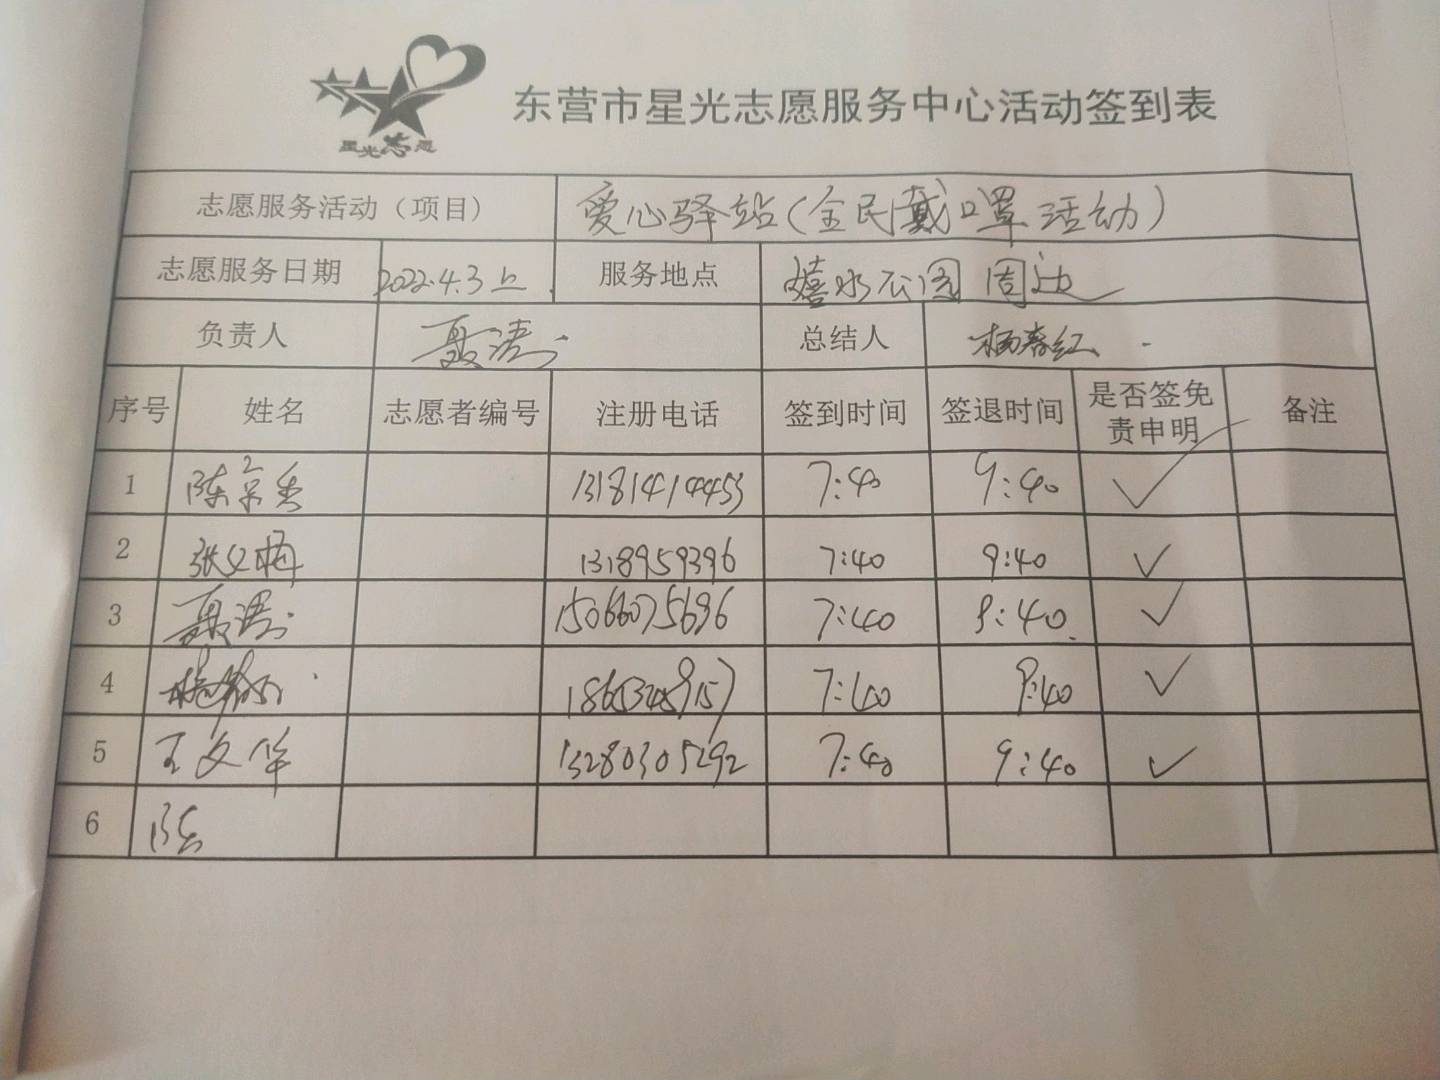 星光志愿
东营市星光志愿服务中心活动签到表
志愿服务活动（项目） 爱心驿站(全民戴口罩活动)
志愿服务日期 2022.4.3上 服务地点 嬉水公园 周边
负责人 聂涛 总结人 杨春红
序号 姓名 志愿者编号 注册电话 签到时间 签退时间 是否签免责申明 备注
1 陈京秀 13181414453 7:40 9:40 ✓
2 张义梅 1318959396 7:40 9:40 ✓
3 聂涛 15066075696 7:40 9:40 ✓
4 7:40 9:40 ✓
5 王文华 13280305292 7:40 9:40 ✓
6 陈